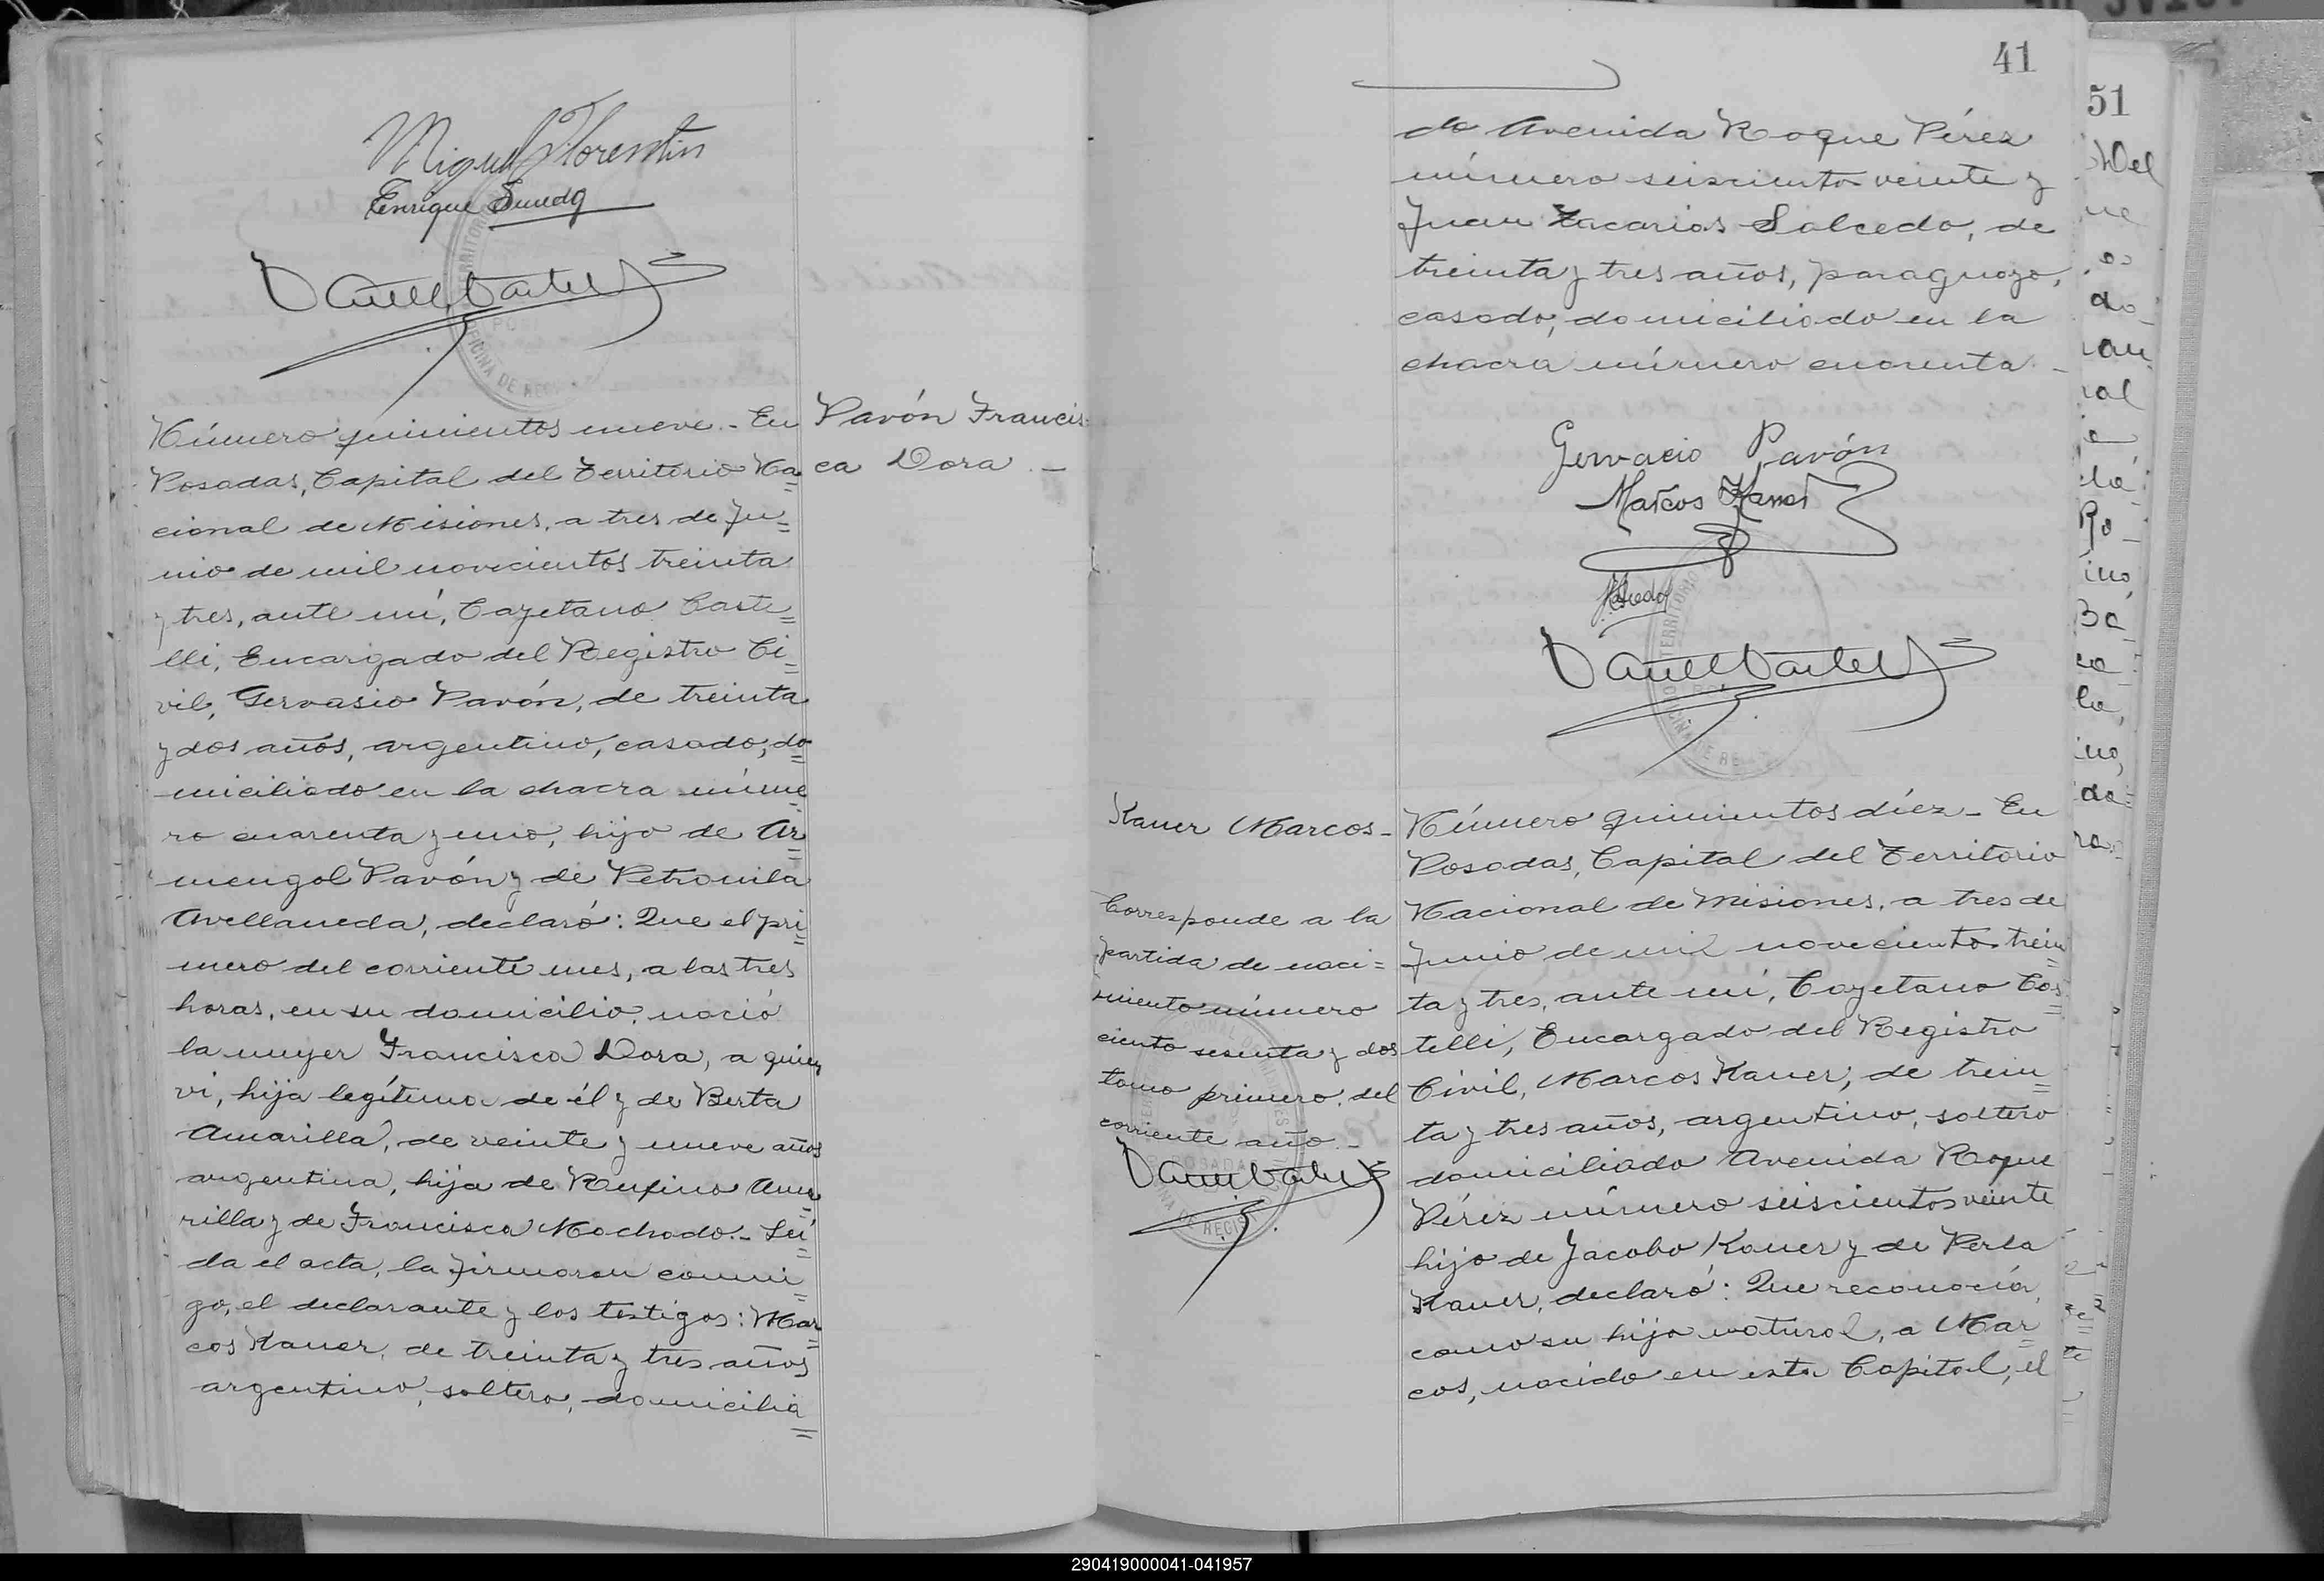 Miguel Florentin
Enrique
Número quinientos nueve.- En
Posadas, Capital del Territorio Na=
cional de Misiones, a tres de Ju=
nio de mil novecientos treinta
y tres, ante mí, Cayetano Caste=
lli, Encargado del Registro Ci=
vil, Gervasio Pavón, de treinta
y dos años, argentino, casado, do=
miciliado en la chacra núme=
ro cuarenta y uno, hijo de Ar=
mengol Pavón y de Petronila
Avellaneda, declaró: Que el pri=
mero del corriente mes, a las tres
horas, en su domicilio, nació
la mujer Francisca Dora, a quien
vi, hija legítima de él y de Berta
Amarilla, de veinte y nueve años
argentina, hija de Rufino Ama=
rilla y de Francisca Machado.- Leí=
da el acta, la firmaron conmi=
go, el declarante y los testigos: Mar=
cos Kaner, de treinta y tres años
argentino, soltero, domicilia=
Pavón Francis=
ca Dora.-
41
do Avenida Roque Pérez
número seiscientos veinte y
Juan Zacarias Salcedo, de
treinta y tres años, paraguayo,
casado, domiciliado en la
chacra número cuarenta.-
Gervacio Pavón
Marcos Kaner
Kaner Marcos-
Corresponde a la
partida de naci=
miento número
ciento sesenta y dos
tomo primero del
corriente año.-
Número quinientos diez- En
Posadas, Capital del Territorio
Nacional de Misiones, a tres de
Junio de mil novecientos trein=
ta y tres, ante mí, Cayetano Cas=
telli, Encargado del Registro
Civil, Marcos Kaner, de trein=
ta y tres años, argentino, soltero
domiciliado Avenida Roque
Pérez número seiscientos veinte
hijo de Jacobo Kaner y de Perla
Kaner, declaró: Que reconocía,
como su hijo natural, a Mar=
cos, nacido en esta Capital, el
51
290419000041-041957